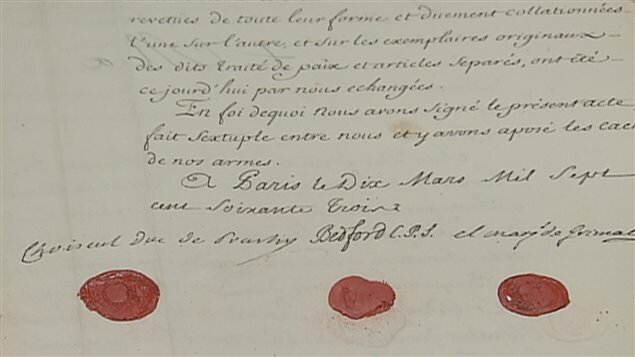 revetues de toute leur forme et duement collationnées
l'une sur l'autre, et sur les exemplaires originaux
des dits traité de paix et articles separés, ont été
ce jourd'hui par nous echangées.
En foi dequoi Nous avons signé le present acte
fait Sextuple entre nous et y avons aposé les cac
de nos armes.
A Paris le Dix Mars Mil Sept
cent Soixante Trois
Choiseul duc de Praslin Bedford C.P.S. el marq. de Grimal